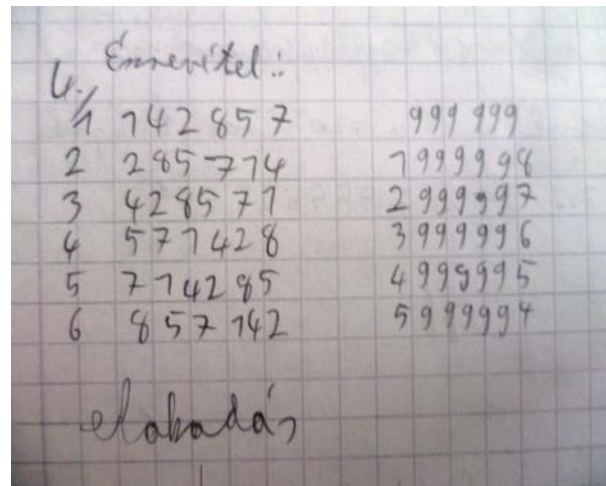 Észrevétel:
4./1 142857 999 999
2 285714 1999998
3 428571 2999997
4 571428 3999996
5 714285 4999995
6 857142 5999994
elakadás